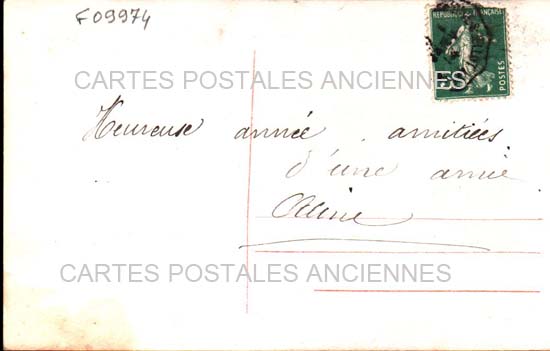 F09974
REPUBLIQUE FRANÇAISE
POSTES
CARTES POSTALES ANCIENNES
Heureuse année . amitiées
d'une amie
Aline
CARTES POSTALES ANCIENNES